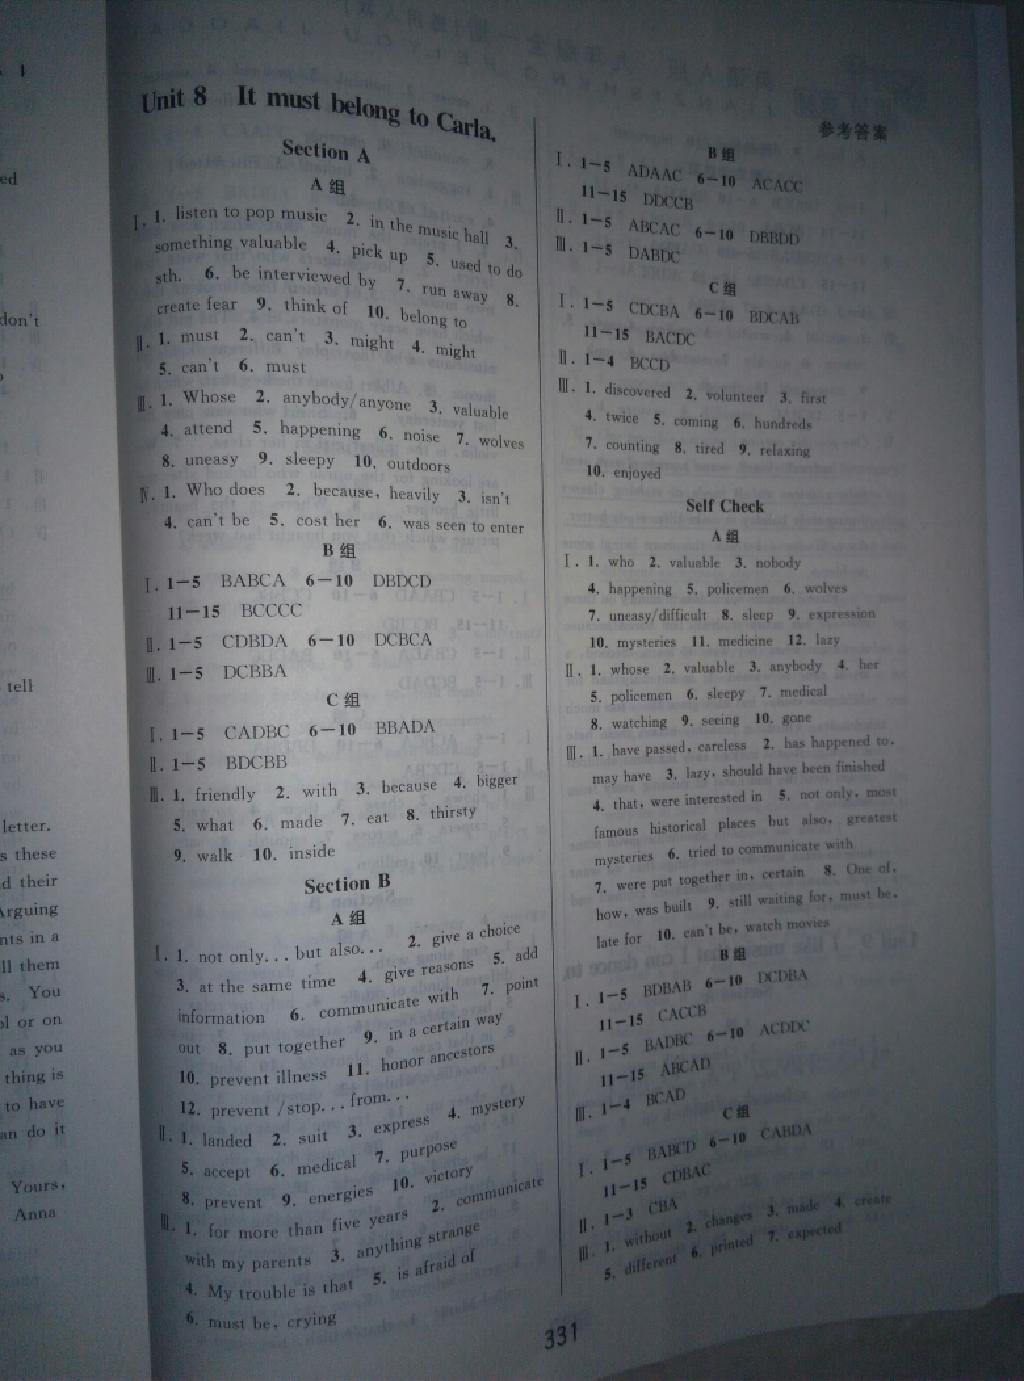 参考答案
Unit 8 It must belong to Carla.
Section A
A 组
Ⅰ. 1. listen to pop music 2. in the music hall 3.
something valuable 4. pick up 5. used to do
sth. 6. be interviewed by 7. run away 8.
create fear 9. think of 10. belong to
Ⅱ. 1. must 2. can't 3. might 4. might
5. can't 6. must
Ⅲ. 1. Whose 2. anybody/anyone 3. valuable
4. attend 5. happening 6. noise 7. wolves
8. uneasy 9. sleepy 10. outdoors
Ⅳ. 1. Who does 2. because, heavily 3. isn't
4. can't be 5. cost her 6. was seen to enter
B 组
Ⅰ. 1-5 BABCA 6-10 DBDCD
11-15 BCCCC
Ⅱ. 1-5 CDBDA 6-10 DCBCA
Ⅲ. 1-5 DCBBA
C 组
Ⅰ. 1-5 CADBC 6-10 BBADA
Ⅱ. 1-5 BDCBB
Ⅲ. 1. friendly 2. with 3. because 4. bigger
5. what 6. made 7. eat 8. thirsty
9. walk 10. inside
Section B
A 组
Ⅰ. 1. not only... but also... 2. give a choice
3. at the same time 4. give reasons 5. add
information 6. communicate with 7. point
out 8. put together 9. in a certain way
10. prevent illness 11. honor ancestors
12. prevent /stop... from...
Ⅱ. 1. landed 2. suit 3. express 4. mystery
5. accept 6. medical 7. purpose
8. prevent 9. energies 10. victory
Ⅲ. 1. for more than five years 2. communicate
with my parents 3. anything strange
4. My trouble is that 5. is afraid of
6. must be, crying
B 组
Ⅰ. 1-5 ADAAC 6-10 ACACC
11-15 DDCCB
Ⅱ. 1-5 ABCAC 6-10 DBBDD
Ⅲ. 1-5 DABDC
C 组
Ⅰ. 1-5 CDCBA 6-10 BDCAB
11-15 BACDC
Ⅱ. 1-4 BCCD
Ⅲ. 1. discovered 2. volunteer 3. first
4. twice 5. coming 6. hundreds
7. counting 8. tired 9. relaxing
10. enjoyed
Self Check
A 组
Ⅰ. 1. who 2. valuable 3. nobody
4. happening 5. policemen 6. wolves
7. uneasy/difficult 8. sleep 9. expression
10. mysteries 11. medicine 12. lazy
Ⅱ. 1. whose 2. valuable 3. anybody 4. her
5. policemen 6. sleepy 7. medical
8. watching 9. seeing 10. gone
Ⅲ. 1. have passed, careless 2. has happened to,
may have 3. lazy, should have been finished
4. that, were interested in 5. not only, most
famous historical places but also, greatest
mysteries 6. tried to communicate with
7. were put together in, certain 8. One of,
how, was built 9. still waiting for, must be,
late for 10. can't be, watch movies
B 组
Ⅰ. 1-5 BDBAB 6-10 DCDBA
11-15 CACCB
Ⅱ. 1-5 BADBC 6-10 ACDDC
11-15 ABCAD
Ⅲ. 1-4 BCAD
C 组
Ⅰ. 1-5 BABCD 6-10 CABDA
11-15 CDBAC
Ⅱ. 1-3 CBA
Ⅲ. 1. without 2. changes 3. made 4. create
5. different 6. printed 7. expected
331
don't
tell
letter.
these
their
Arguing
in a
them
You
or on
as you
thing is
to have
do it
Yours,
Anna